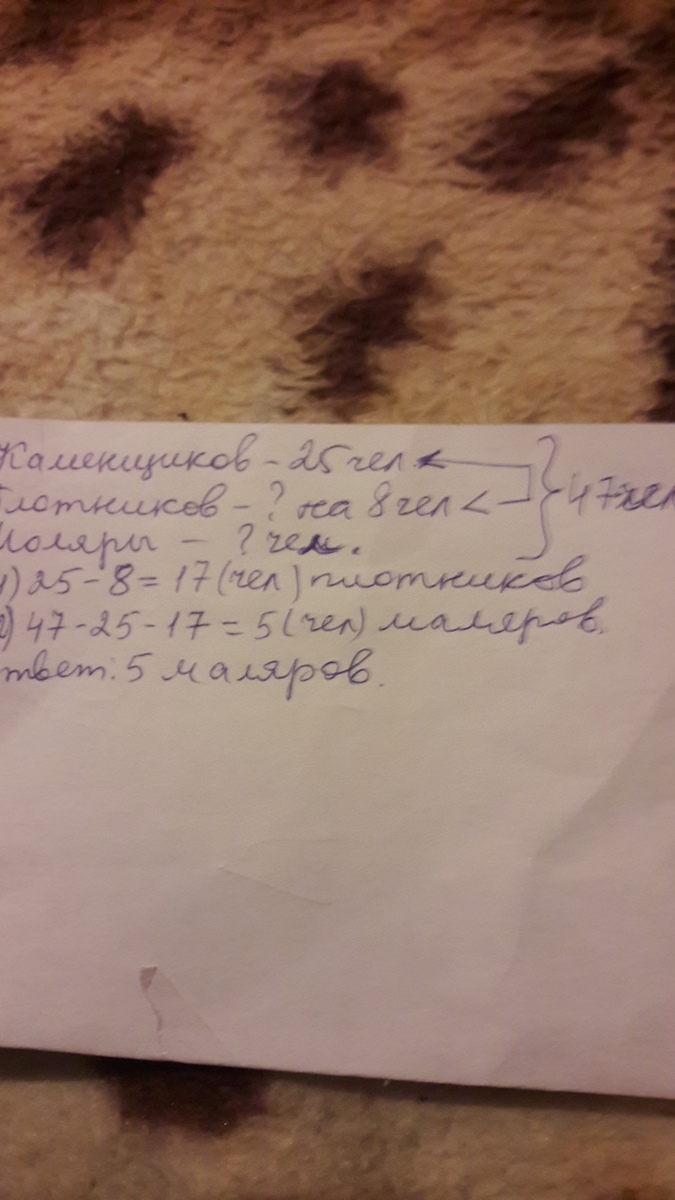 Каменщиков - 25 чел
лотников - ? на 8 чел < } 47 чел
Моляры - ? чел.
1) 25 - 8 = 17 (чел) плотников
2) 47 - 25 - 17 = 5 (чел) маляров.
твет: 5 маляров.